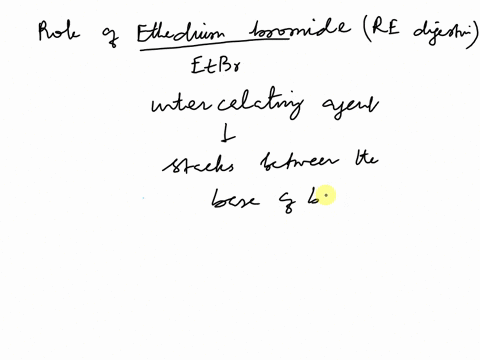 Role of Ethedium bromide (RE digestin)
EtBr
intercelating agent
↓
stacks between the
base of b